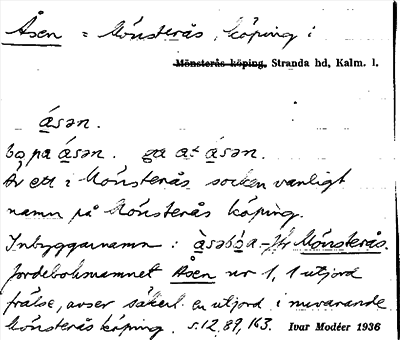 Åsen = Mönsterås köping i
Mönsterås köping, Stranda hd, Kalm. l.
ásən.
bo̜ pa ásən. ga at ásən.
Är ett i Mönsterås socken vanligt
namn på Mönsterås köping.
Inbyggarnamn: Mönsterås.
Jordeboksnamnet Åsen nr 1, 1 utjord
frälse, avser säkerl. en utjord i nuvarande
Mönsterås köping. s. 12, 89, 163. Ivar Modéer 1936